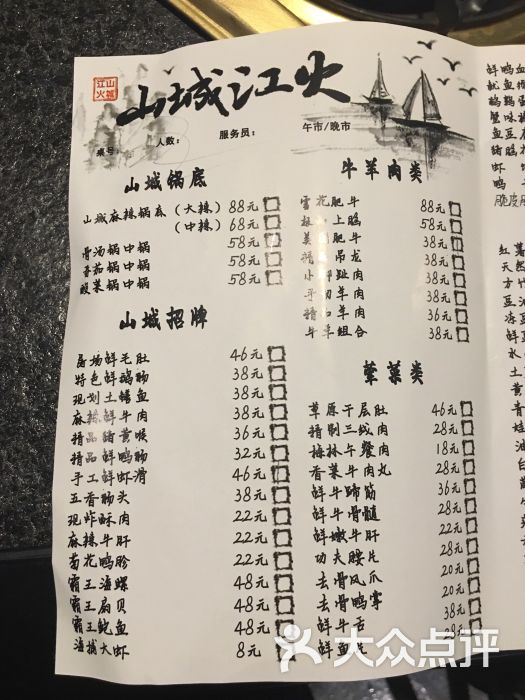 山城江火
山城江火
桌号:
人数:
服务员:
午市/晚市
山城锅底
山城麻辣锅底(大辣) 88元
(中辣) 68元
骨汤锅中锅 58元
番茄锅中锅 58元
酸菜锅中锅 58元
山城招牌
屠场鲜毛肚 46元
特色鲜鹅肠 38元
现划土鳝鱼 38元
麻辣鲜牛肉 38元
精品猪黄喉 36元
精品鲜鸭肠 32元
手工鲜虾滑 46元
五香肠头 38元
现炸酥肉 22元
麻辣牛肝 22元
菊花鸭胗 22元
霸王海螺 48元
霸王扇贝 48元
霸王鲍鱼 48元
海捕大虾 8元
牛羊肉类
雪花肥牛 88元
上脑 58元
美 肥牛 38元
精 吊龙 38元
小 趾肉 38元
手切羊肉 38元
精品羊肉 36元
牛羊组合 38元
荤菜类
草原千层肚 46元
精剔三线肉 28元
梅林午餐肉 18元
香菜牛肉丸 28元
鲜牛蹄筋 36元
鲜牛骨髓 28元
鲜嫩牛肝 22元
功夫腰片 28元
去骨凤爪 20元
去骨鸭掌 20元
鲜牛舌 38元
鲜鱼片 28元
鲜鸭血
鱿鱼
鹌鹑
蟹味
鱼豆
猪脑
虾
鸭
脆皮
红薯
天然
方竹
豆油
冻豆
鲜豆
水
土
青
青
娃
油
白
大众点评